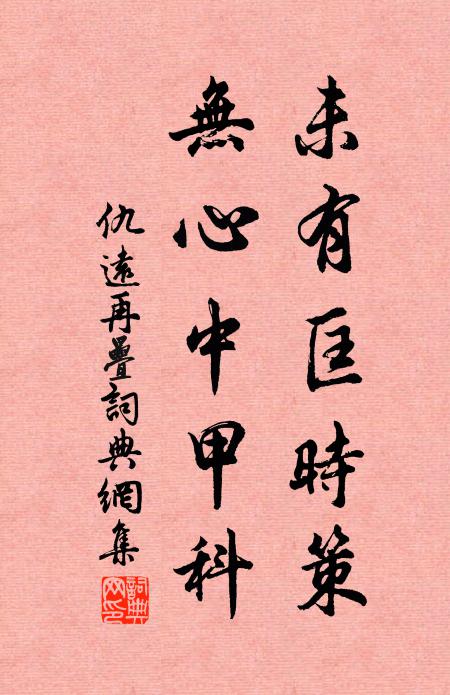 未有匡時策
無心中甲科
仇遠再疊詞典網集
詞典網印